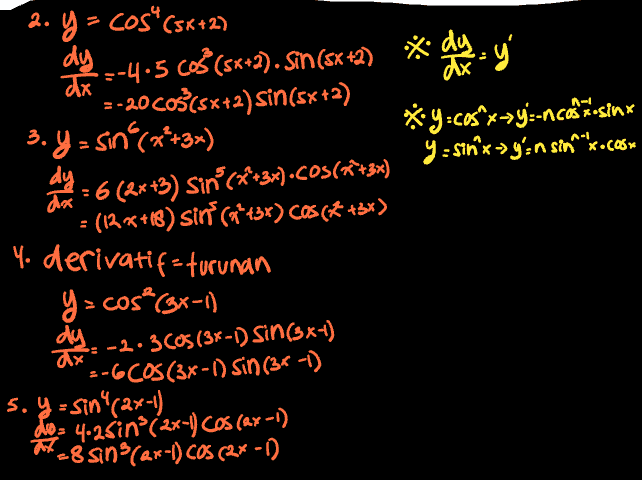 2. y = cos⁴(5x+2)
dy/dx = -4·5 cos³(5x+2)·sin(5x+2)
= -20cos³(5x+2)sin(5x+2)
3. y = sin⁶(x²+3x)
dy/dx = 6(2x+3) sin⁵(x²+3x)·cos(x²+3x)
= (12x+18) sin⁵(x²+3x) cos(x²+3x)
4. derivatif = turunan
y = cos²(3x-1)
dy/dx = -2·3cos(3x-1)sin(3x-1)
= -6cos(3x-1)sin(3x-1)
5. y = sin⁴(2x-1)
dy/dx = 4·2sin³(2x-1)cos(2x-1)
= 8sin³(2x-1)cos(2x-1)
※ dy/dx = y'
※ y=cosⁿx→y'=-ncosⁿ⁻¹x·sinx
y=sinⁿx→y'=n sinⁿ⁻¹x·cosx